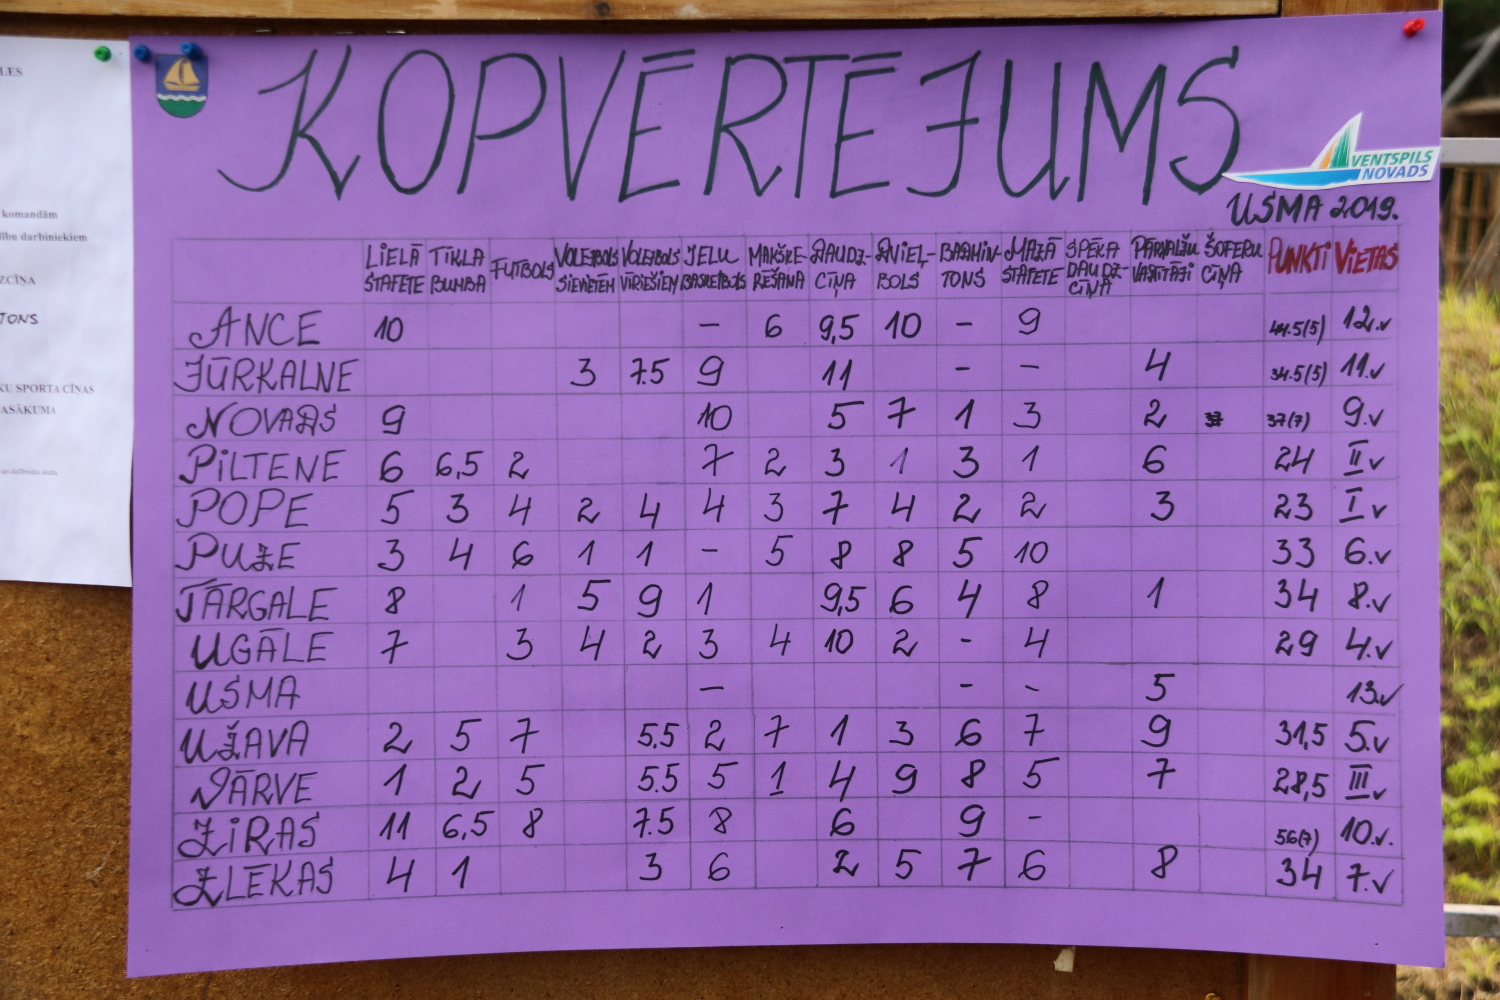 LES
komandām
ību darbiniekiem
ZCĪŅA
TONS
KU SPORTA CĪŅAS
ASĀKUMA
KOPVĒRTĒJUMS
VENTSPILS
NOVADS
USMA 2019.
LIELĀ STAFETE TĪKLA BUMBA FUTBOLS VOLEJBOLS SIEVIETĒM VOLEJBOLS VĪRIEŠIEM IELU BASKETBOLS MAKŠĶE-RĒŠANA DAUDZ-CĪŅA DVIEĻ-BOLS BADMIN-TONS MAZĀ STAFETE SPĒKA DAUDZ-CĪŅA PĀRVALŽU VADĪTĀJI ŠOFERU CĪŅA PUNKTI VIETAS
ANCE 10 – 6 9,5 10 – 9 44.5(5) 12.v
JŪRKALNE 3 7.5 9 11 – – 4 34.5(5) 11.v
NOVADS 9 10 5 7 1 3 2 37(7) 9.v
PILTENE 6 6,5 2 7 2 3 1 3 1 6 24 II v
POPE 5 3 4 2 4 4 3 7 4 2 2 3 23 I v
PUZE 3 4 6 1 1 – 5 8 8 5 10 33 6.v
TĀRGALE 8 1 5 9 1 9,5 6 4 8 1 34 8.v
UGĀLE 7 3 4 2 3 4 10 2 - 4 29 4.v
USMA – - - 5 13.v
UŽAVA 2 5 7 5.5 2 7 1 3 6 7 9 31,5 5.v
VĀRVE 1 2 5 5.5 5 1 4 9 8 5 7 28,5 III v
ZIRAS 11 6,5 8 7.5 8 6 9 - 56(7) 10.v.
ZLĒKAS 4 1 3 6 2 5 7 6 8 34 7.v